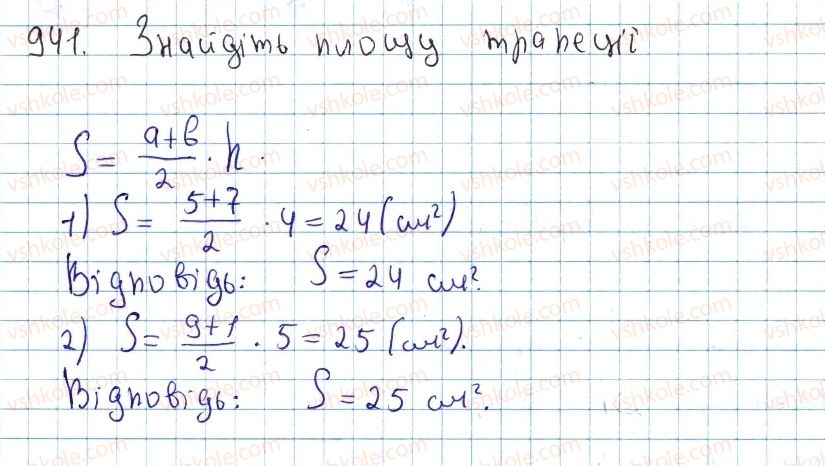 941. Знайдіть площу трапеції
S = (a+b)/2 · h.
1) S = (5+7)/2 · 4 = 24 (см²)
Відповідь: S = 24 см².
2) S = (9+1)/2 · 5 = 25 (см²).
Відповідь: S = 25 см².